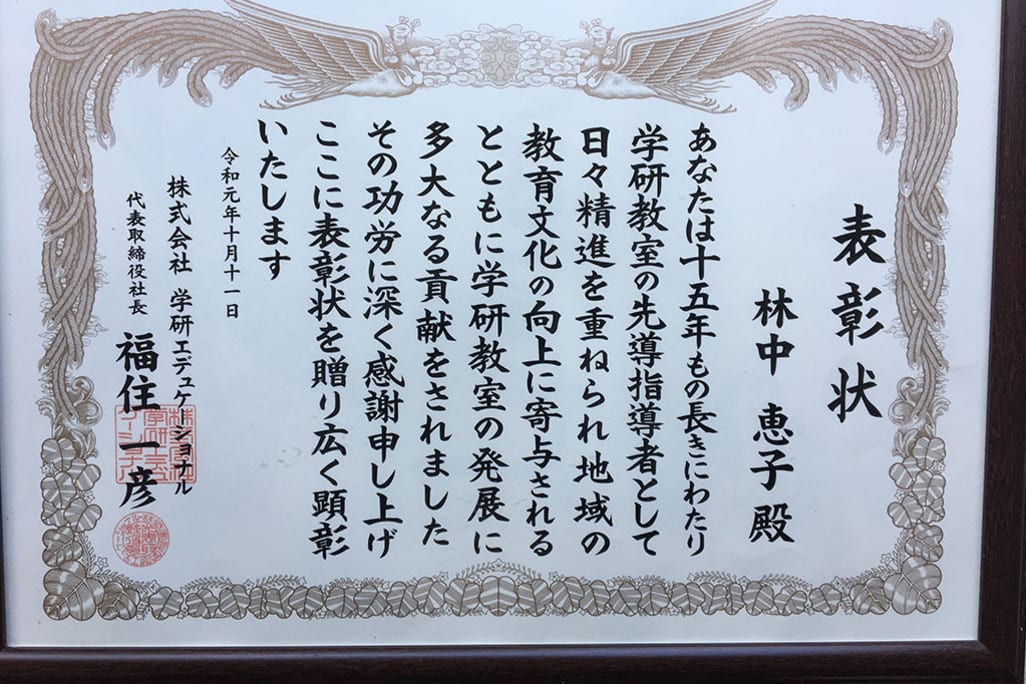 表彰状
林中 恵子 殿
あなたは十五年もの長きにわたり
学研教室の先導指導者として
日々精進を重ねられ地域の
教育文化の向上に寄与される
とともに学研教室の発展に
多大なる貢献をされました
その功労に深く感謝申し上げ
ここに表彰状を贈り広く顕彰
いたします
令和元年十月十一日
株式会社 学研エデュケーショナル
代表取締役社長 福住 一彦